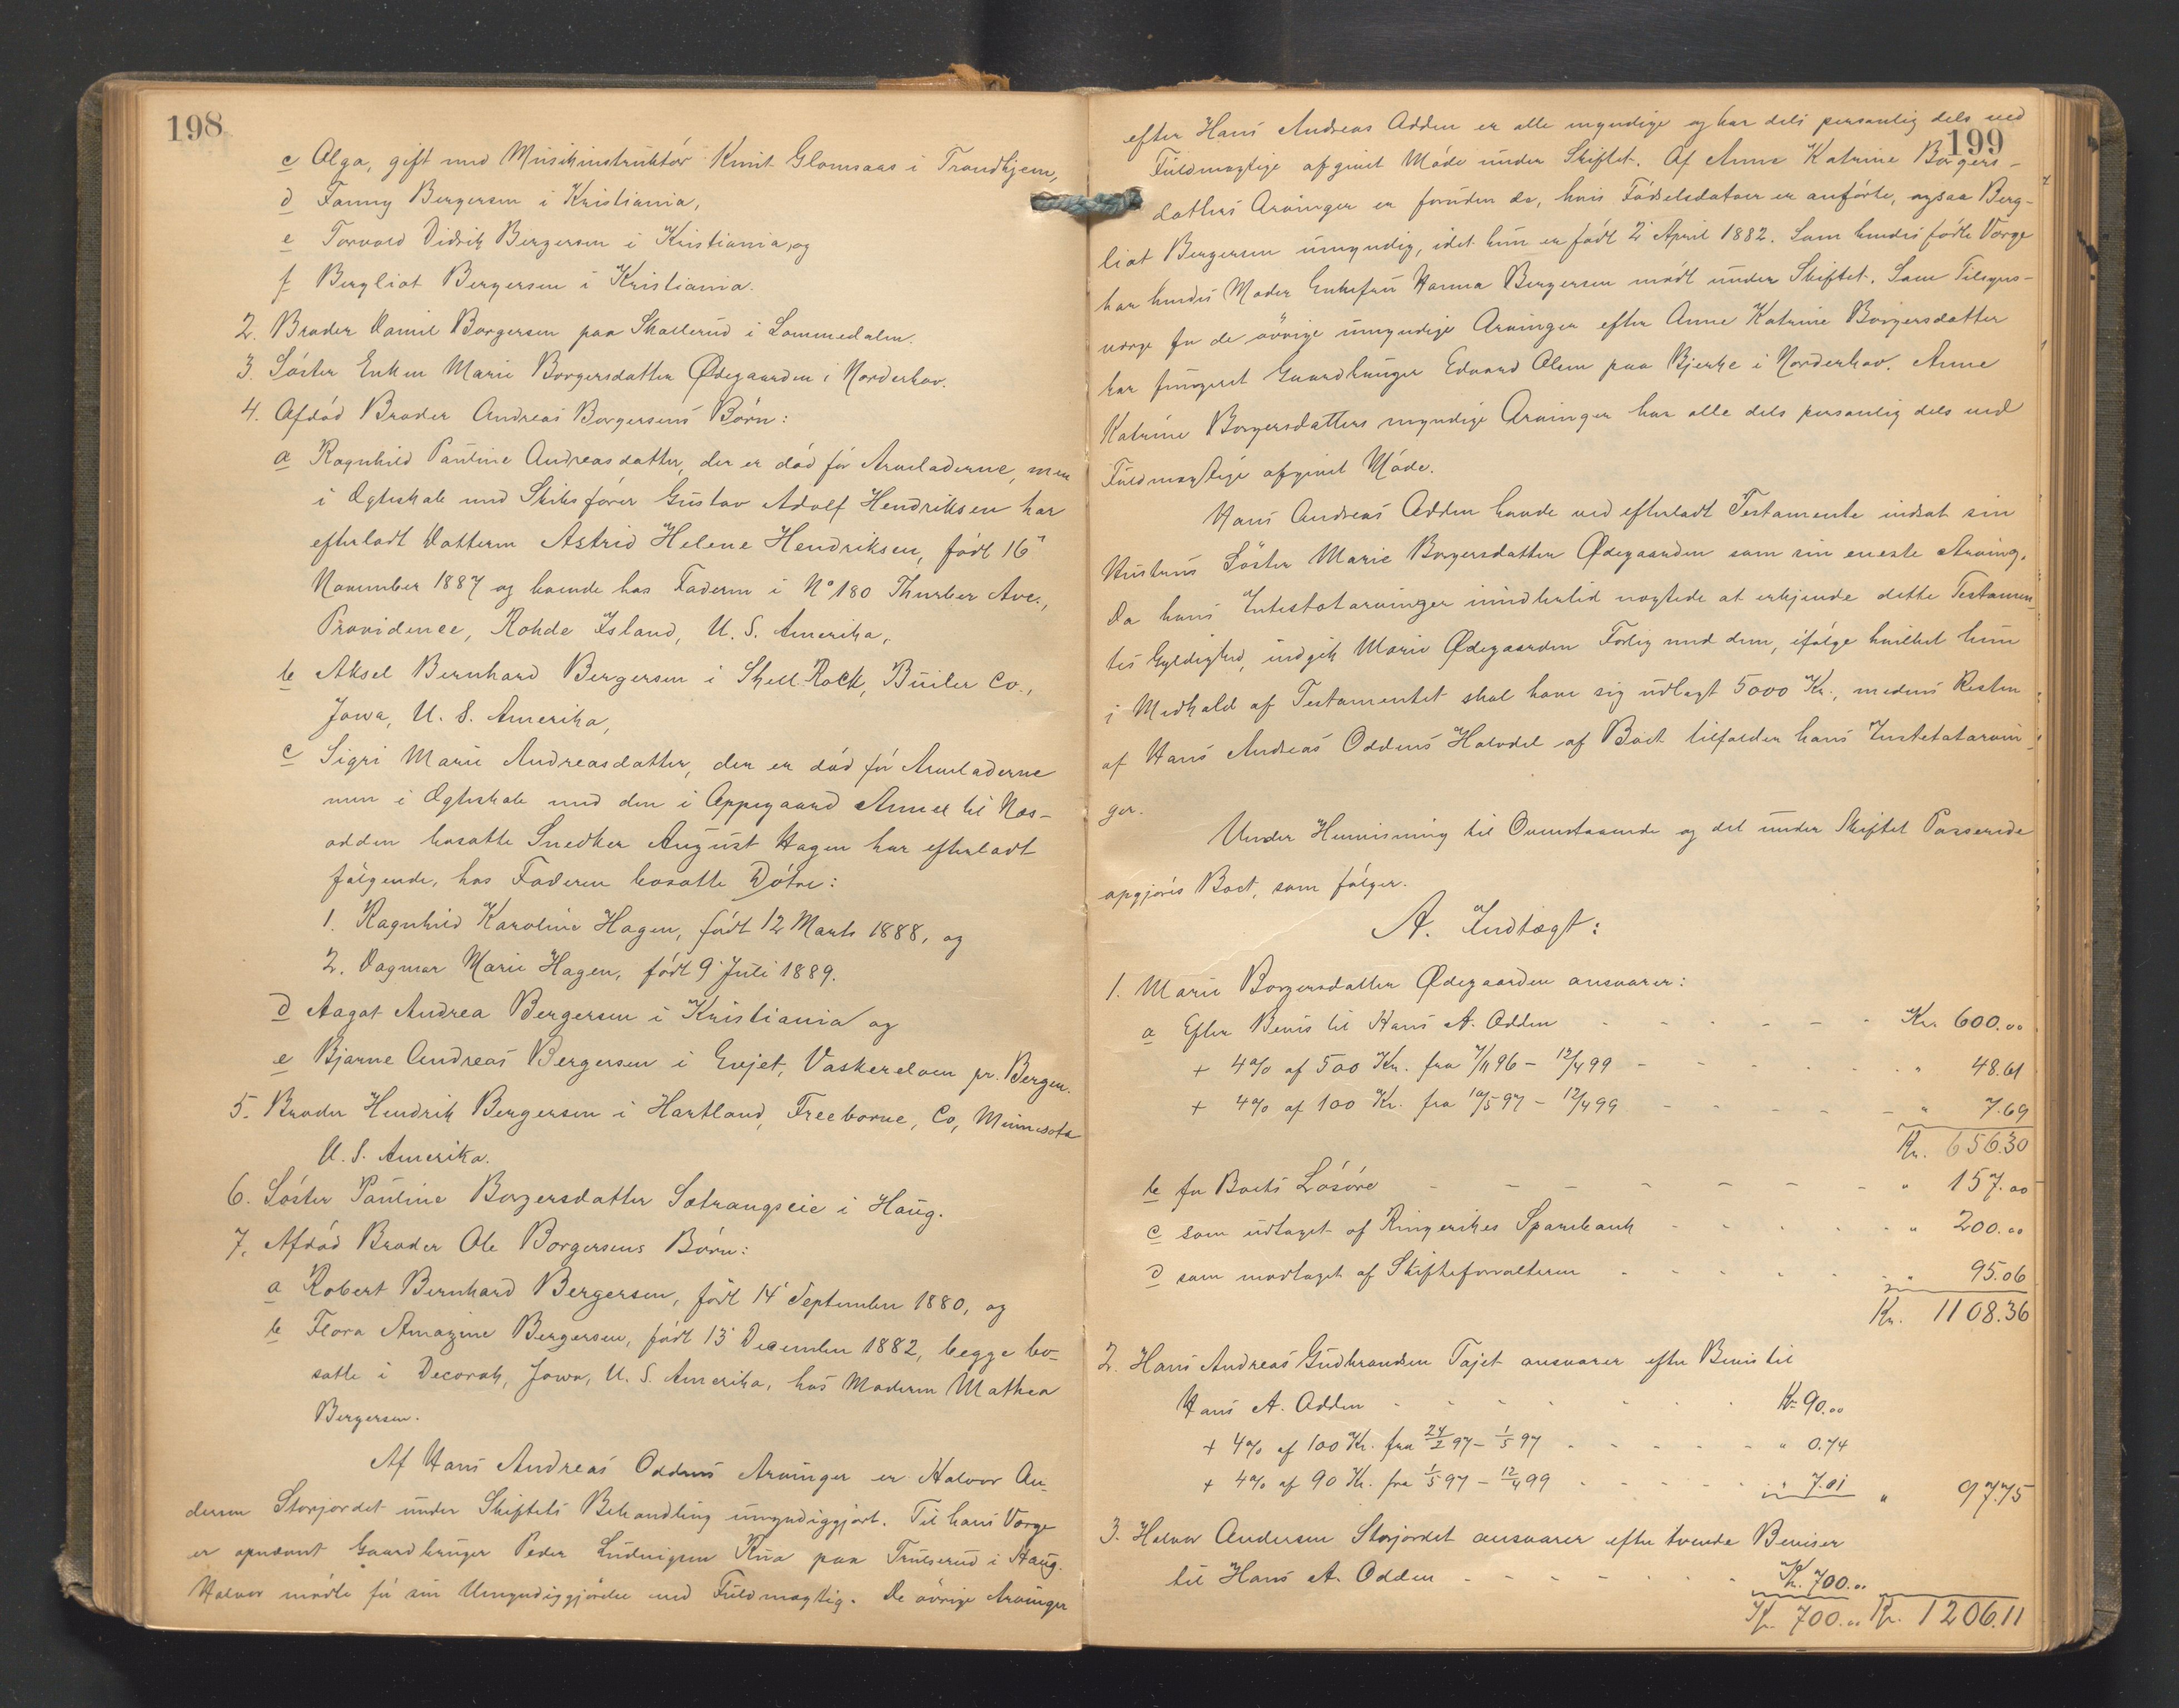 198
c Olga, gift med Musikinstruktör Knut Glomsaas i Trondhjem,
d Fanny Bergersen i Kristiania,
e Torvald Didrik Bergersen i Kristiania, og
f Bergliot Bergersen i Kristiania.
2. Broder Daniel Borgersen paa Skallerud i Lommedalen.
3. Söster Enken Marie Borgersdatter Ødegaarden i Norderhov.
4. Afdöd Broder Andreas Borgersens Börn:
a Ragnhild Pauline Andreasdatter, der er död för Arveladerne, men
i Ægteskab med Skibsförer Gustav Adolf Hendriksen har
efterladt Datteren Astrid Helene Hendriksen, födt 16'
November 1887 og boende hos Faderen i No 180 Thurber Ave.,
Providence, Rohde Island, U. S. Amerika,
b Aksel Bernhard Bergersen i Shell Rock, Butler Co.,
Jowa, U. S. Amerika,
c Sigri Marie Andreasdatter, der er död för Arveladerne
men i Ægteskab med den i Oppegaard Annex til Nes-
odden bosatte Snedker August Hagen har efterladt
fölgende, hos Faderen bosatte Dötre:
1. Ragnhild Karoline Hagen, födt 12 Marts 1888, og
2. Dagmar Marie Hagen, födt 9' Juli 1889.
d Aagot Andrea Bergersen i Kristiania og
e Bjarne Andreas Bergersen i Evjet, Vaskerelven pr. Bergen.
5. Broder Hendrik Bergersen i Hartland, Freeborne, Co, Minnesota
U. S. Amerika.
6. Söster Pauline Borgersdatter Sætrangseie i Haug.
7. Afdöd Broder Ole Borgersens Börn:
a Robert Bernhard Bergersen, födt 14' September 1880, og
b Flora Amazine Bergersen, födt 13' December 1882, begge bo-
satte i Decorah, Jowa, U. S. Amerika, hos Moderen Mathea
Bergersen.
Af Hans Andreas Oddens Arvinger er Halvor An-
dersen Storjordet under Skiftets Behandling umyndiggjort. Til hans Værge
er opnævnt Gaardbruger Peder Ludvigsen Rua paa Trulserud i Haug.
Halvor mödte för sin Umyndiggjörelse med Fuldmægtig. De övrige Arvinger
199
efter Hans Andreas Odden er alle myndige og har dels personlig dels ved
Fuldmægtige afgivet Möde under Skiftet. Af Anne Katrine Borgers-
datters Arvinger er foruden de, hvis Födselsdatoer er anförte, ogsaa Berg-
liot Bergersen umyndig, idet hun er födt 2' April 1882. Som hendes födte Værge
har hendes Moder Enkefru Hanna Bergersen mödt under Skiftet. Som Tilsyns-
værge for de övrige umyndige Arvinger efter Anne Katrine Borgersdatter
har fungeret Gaardbruger Edvard Olsen paa Bjerke i Norderhov. Anne
Katrine Borgersdatters myndige Arvinger har alle dels personlig dels ved
Fuldmægtige afgivet Möde.
Hans Andreas Odden havde ved efterladt Testamente indsat sin
Hustrus Söster Marie Borgersdatter Ødegaarden som sin eneste Arving.
Da hans Intestatarvinger imidlertid nægtede at erkjende dette Testamen-
tes Gyldighed, indgik Marie Ødegaarden Forlig med dem, ifölge hvilket hun
i Medhold af Testamentet skal have sig udlagt 5000 Kr., medens Resten
af Hans Andreas Oddens Halvdel af Boet tilfalder hans Intestatarvin-
ger.
Under Henvisning til Ovenstaaende og det under Skiftet Passerede
opgjöres Boet, som fölger.
A. Indtægt:
1. Marie Borgersdatter Ødegaarden ansvarer:
a Efter Bevis til Hans A. Odden Kr. 600.00
+ 4% af 500 Kr. fra 7/11 96 - 12/4 99 " 48.61
+ 4% af 100 Kr. fra 10/5 97 - 12/4 99 " 7.69
Kr. 656.30
b for Boets Lösöre " 157.00
c som udtaget af Ringerikes Sparebank " 200.00
d som modtaget af Skifteforvalteren " 95.06
Kr. 1108.36
2. Hans Andreas Gudbrandsen Tajet ansvarer efter Bevis til
Hans A. Odden Kr. 90.00
+ 4% af 100 Kr. fra 24/2 97 - 1/5 97 " 0.74
+ 4% af 90 Kr. fra 1/5 97 - 12/4 99 " 7.01 " 97.75
3. Halvor Andersen Storjordet ansvarer efter tvende Beviser
til Hans A. Odden Kr. 700.00
Kr. 700.00 Kr. 1206.11